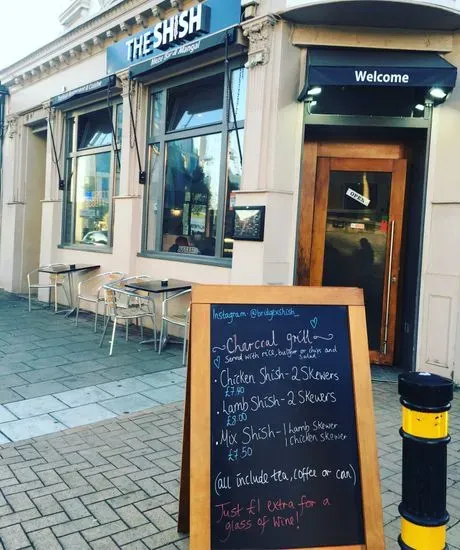 THE SHISH
Meze Bar & Mangal
Welcome
OPEN
Instagram - @bridgtxshish_
Charcoal grill
Served with rice, bulgur or chips and
salad
• Chicken Shish - 2 Skewers
£7.40
• Lamb Shish - 2 Skewers
£8.00
• Mix Shish - 1 Lamb Skewer
1 Chicken skewer
£7.50
(all include tea, coffee or can)
Just £1 extra for a
glass of wine!